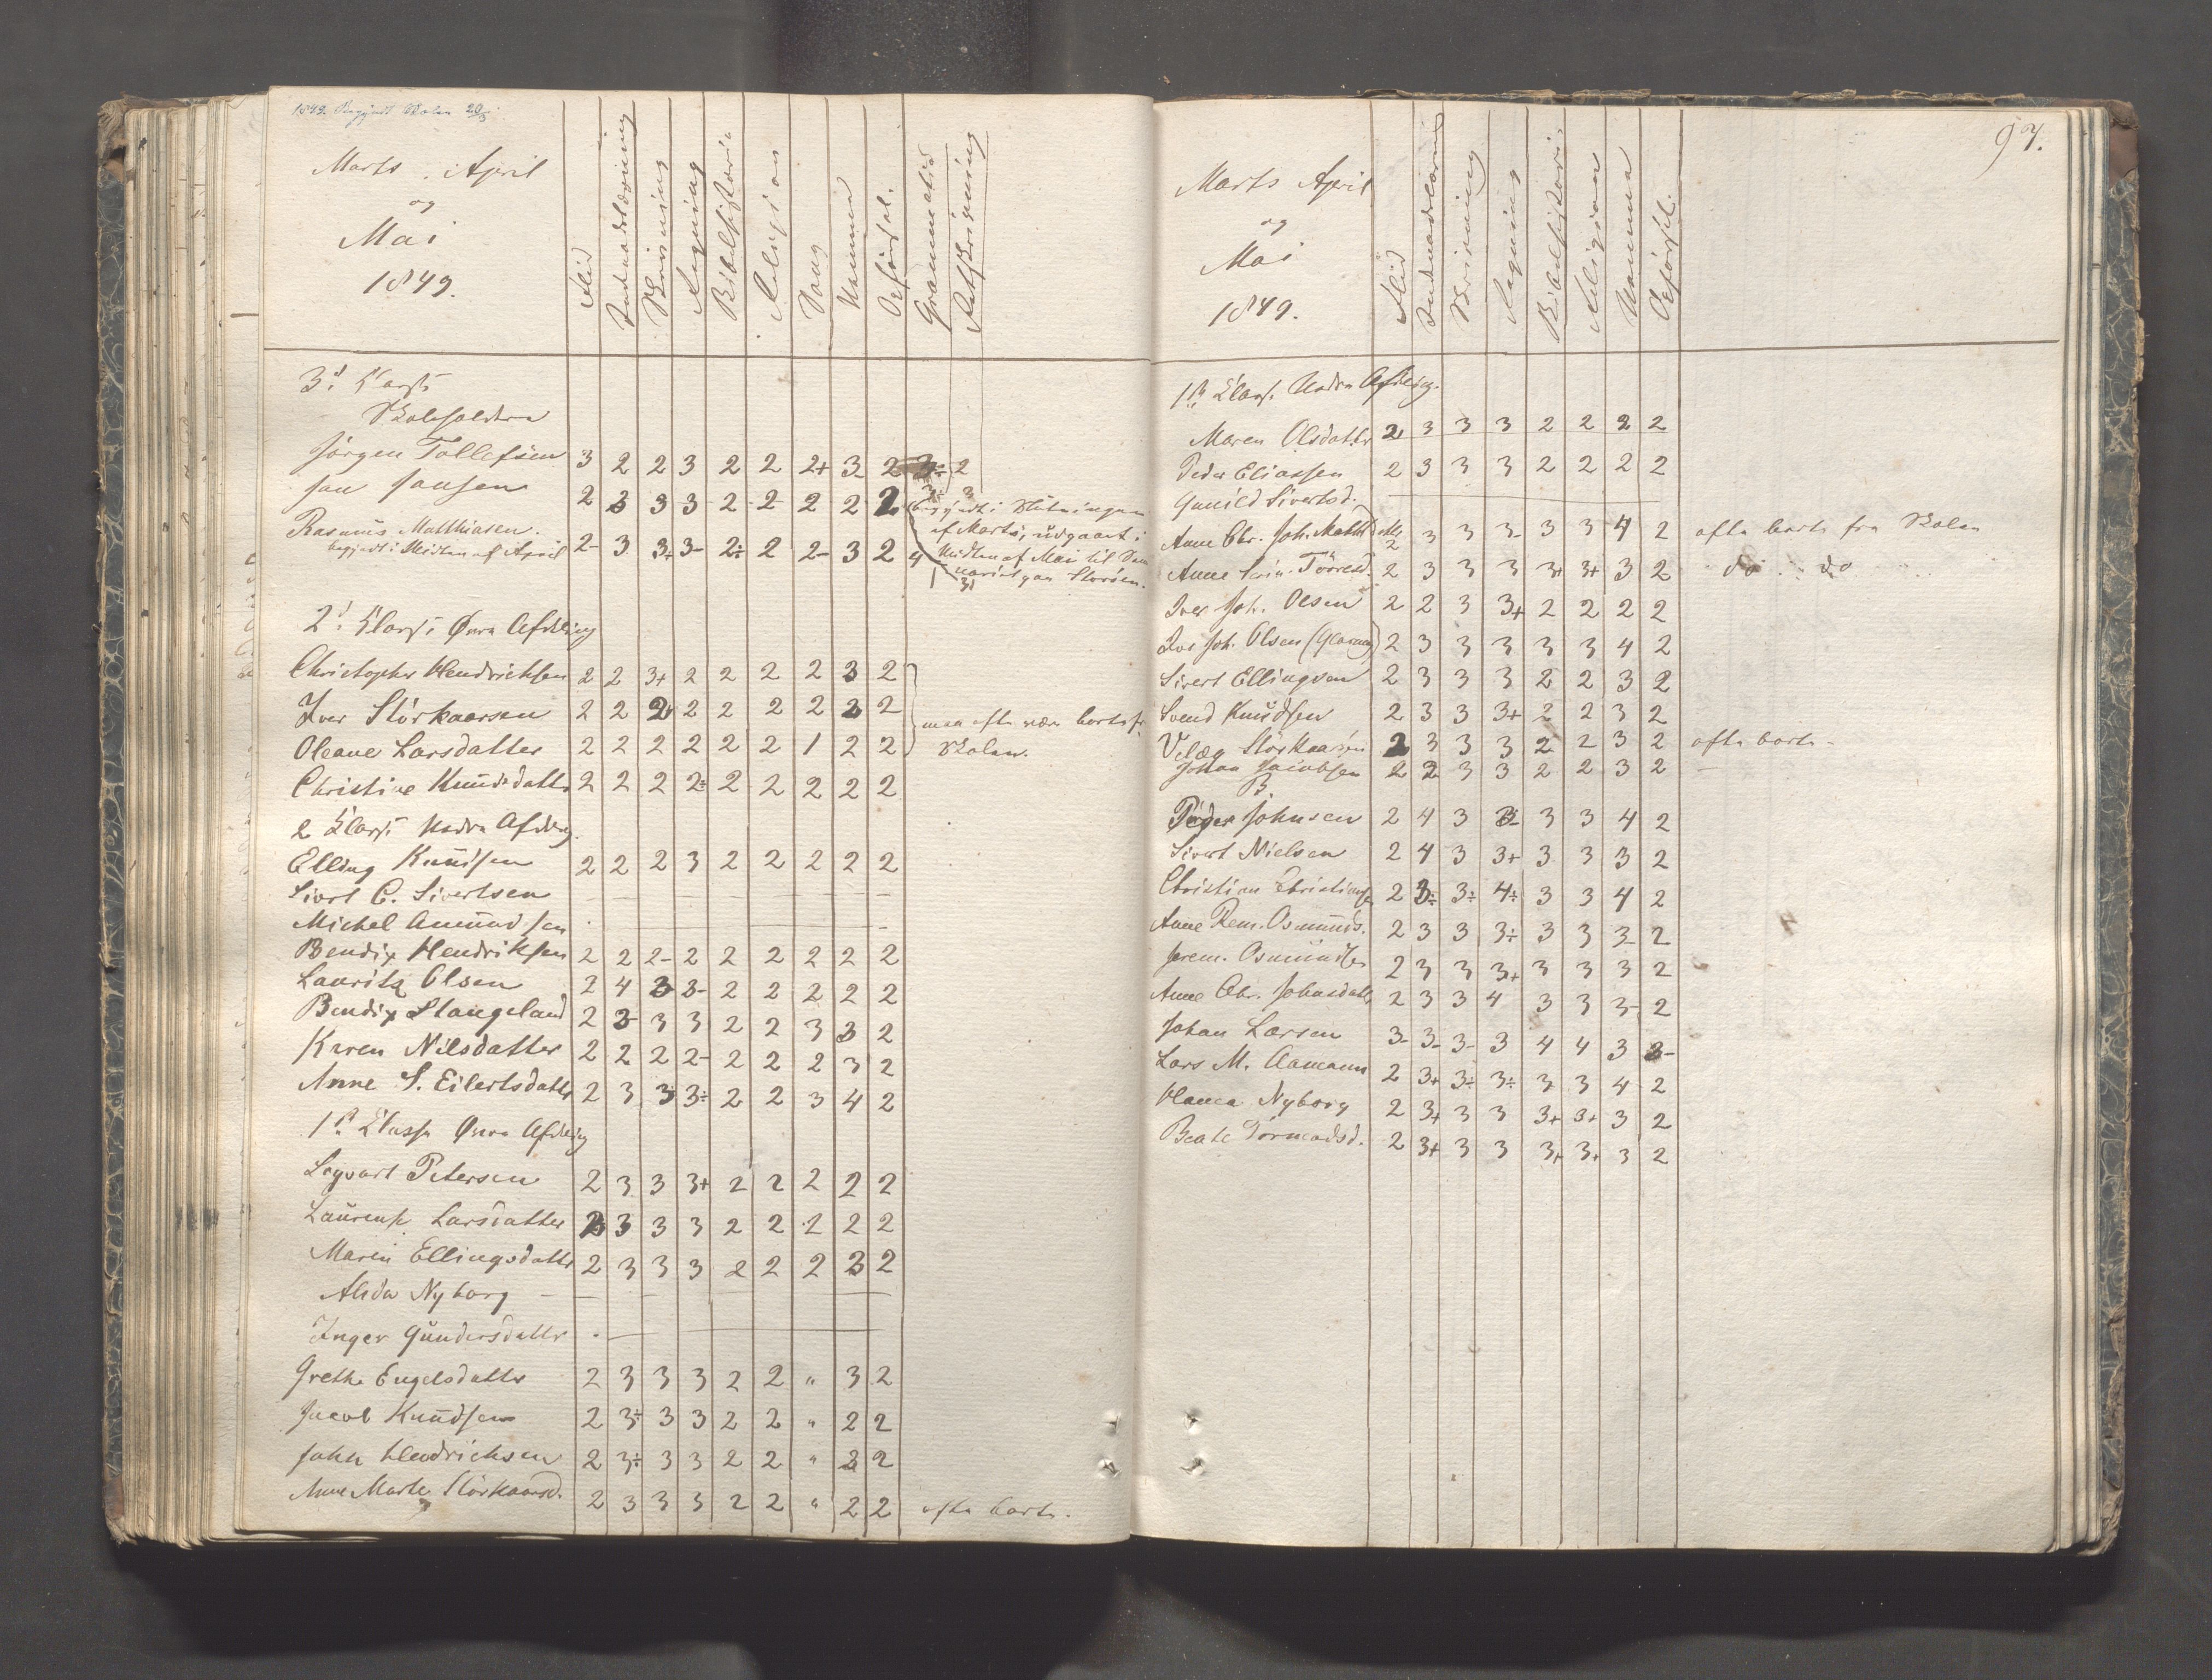 1849. Begyndt Skolen 20/3
Marts. April
og
Mai
1849.
Flid
Indenadslæsning
Skrivning
Regning
Bibelhistorie
Religion
Sang
Nemme
Opførsel.
Grammatik
Retskrivning
3d Klasse
Jørgen Tollefsen 3 2 2 3 2 2 2+ 3 2 2
Jan Jansen 2 3 3 3 2 2 2 2 2
begyndt i Slutningen
af Marts, udgaaet i
Midten af Mai til
Rasmus Matthiasen. 2- 3 3+ 3- 2÷ 2 2- 3 2 4
begyndt i Midten af April
2d Klasse Øvre Afdeling
Christopher Hendrichsen 2 2 3+ 2 2 2 2 3 2
Iver Störkaarsen 2 2 2 2 2 2 2 2 2
maa ofte være borte fr
Oleane Larsdatter 2 2 2 2 2 2 1 2 2
Skolen.
Christine Knudsdattr 2 2 2 2÷ 2 2 2 2 2
2 Klasse Nedre Afdeling.
Elling Knudsen 2 2 2 3 2 2 2 2 2
Sivert C. Sivertsen
Michel Amundsen
Bendix Hendriksen 2 2 2- 2 2 2 2 2 2
Lauritz Olsen 2 4 3 3- 2 2 2 2 2
Bendix Stangeland 2 3- 3 3 2 2 3 3 2
Karen Nilsdatter 2 2 2 2- 2 2 2 3 2
Anne S. Eilertsdattr 2 3 3 3÷ 2 2 3 4 2
1ste Klasse Øvre Afdeling
Sigvart Petersen 2 3 3 3+ 2 2 2 2 2
Laurense Larsdatter 2 3 3 3 2 2 2 2 2
Maren Ellingsdattr 2 3 3 3 2 2 2 3 2
Alida Nyborg —
Inger Gundersdattr
Grethe Engelsdattr 2 3 3 3 2 2 " 3 2
Jacob Knudsen 2 3÷ 3 3 2 2 " 2 2
John Hendrichsen 2 3÷ 3 3 2 2 " 2 2
Anne Marte Störkaarsd. 2 3 3 3 2 2 " 2 2 ofte borte.
97.
Marts April
og
Mai
1849.
Flid
Indenadslæsning
Skrivning
Regning
Bibelhistorie
Religion
Nemme
Opførsel.
1ste Klasse Nedre Afdeling.
Maren Olsdatter 2 3 3 3 2 2 2 2
Peder Eliassen 2 3 3 3 2 2 2 2
Gunild Sivertsd.
Anne Chr. Joh. Matth 2 3 3 3- 3 3 4 2 ofte borte fra Skolen
Anne Serin. Törresd. 2 3 3 3 3+ 3+ 3 2 do do
Iver Joh. Olsen 2 2 3 3+ 2 2 2 2
Iver Joh. Olsen 2 3 3 3 3 3 4 2
Sivert Ellingsen 2 3 3 3 2 2 3 2
Svend Knudsen 2 3 3 3+ 2 2 3 2
Störkaarsen 2 3 3 3 2 2 3 2 ofte borte -
Johan Jacobsen 2 2 3 3 2 2 3 2 —
B.
Peder Johnsen 2 4 3 3- 3 3 4 2
Sivert Nielsen 2 4 3 3+ 3 3 3 2
Christian Christians 2 3÷ 3÷ 4÷ 3 3 4 2
Anne Rem. Osmunds. 2 3 3 3÷ 3 3 3- 2
Jerem. Osmundsen 2 3 3 3+ 3 3 3 2
Anne Chr. Johnsdattr 2 3 3 4 3 3 3- 2
Johan Larsen 3- 3- 3- 3 4 4 3 3-
Lars M. Aamann 2 3+ 3÷ 3÷ 3 3 4 2
Hanca Nyborg 2 3+ 3 3 3+ 3+ 3 2
Beate Tormodsd. 2 3+ 3 3 3+ 3+ 3 2